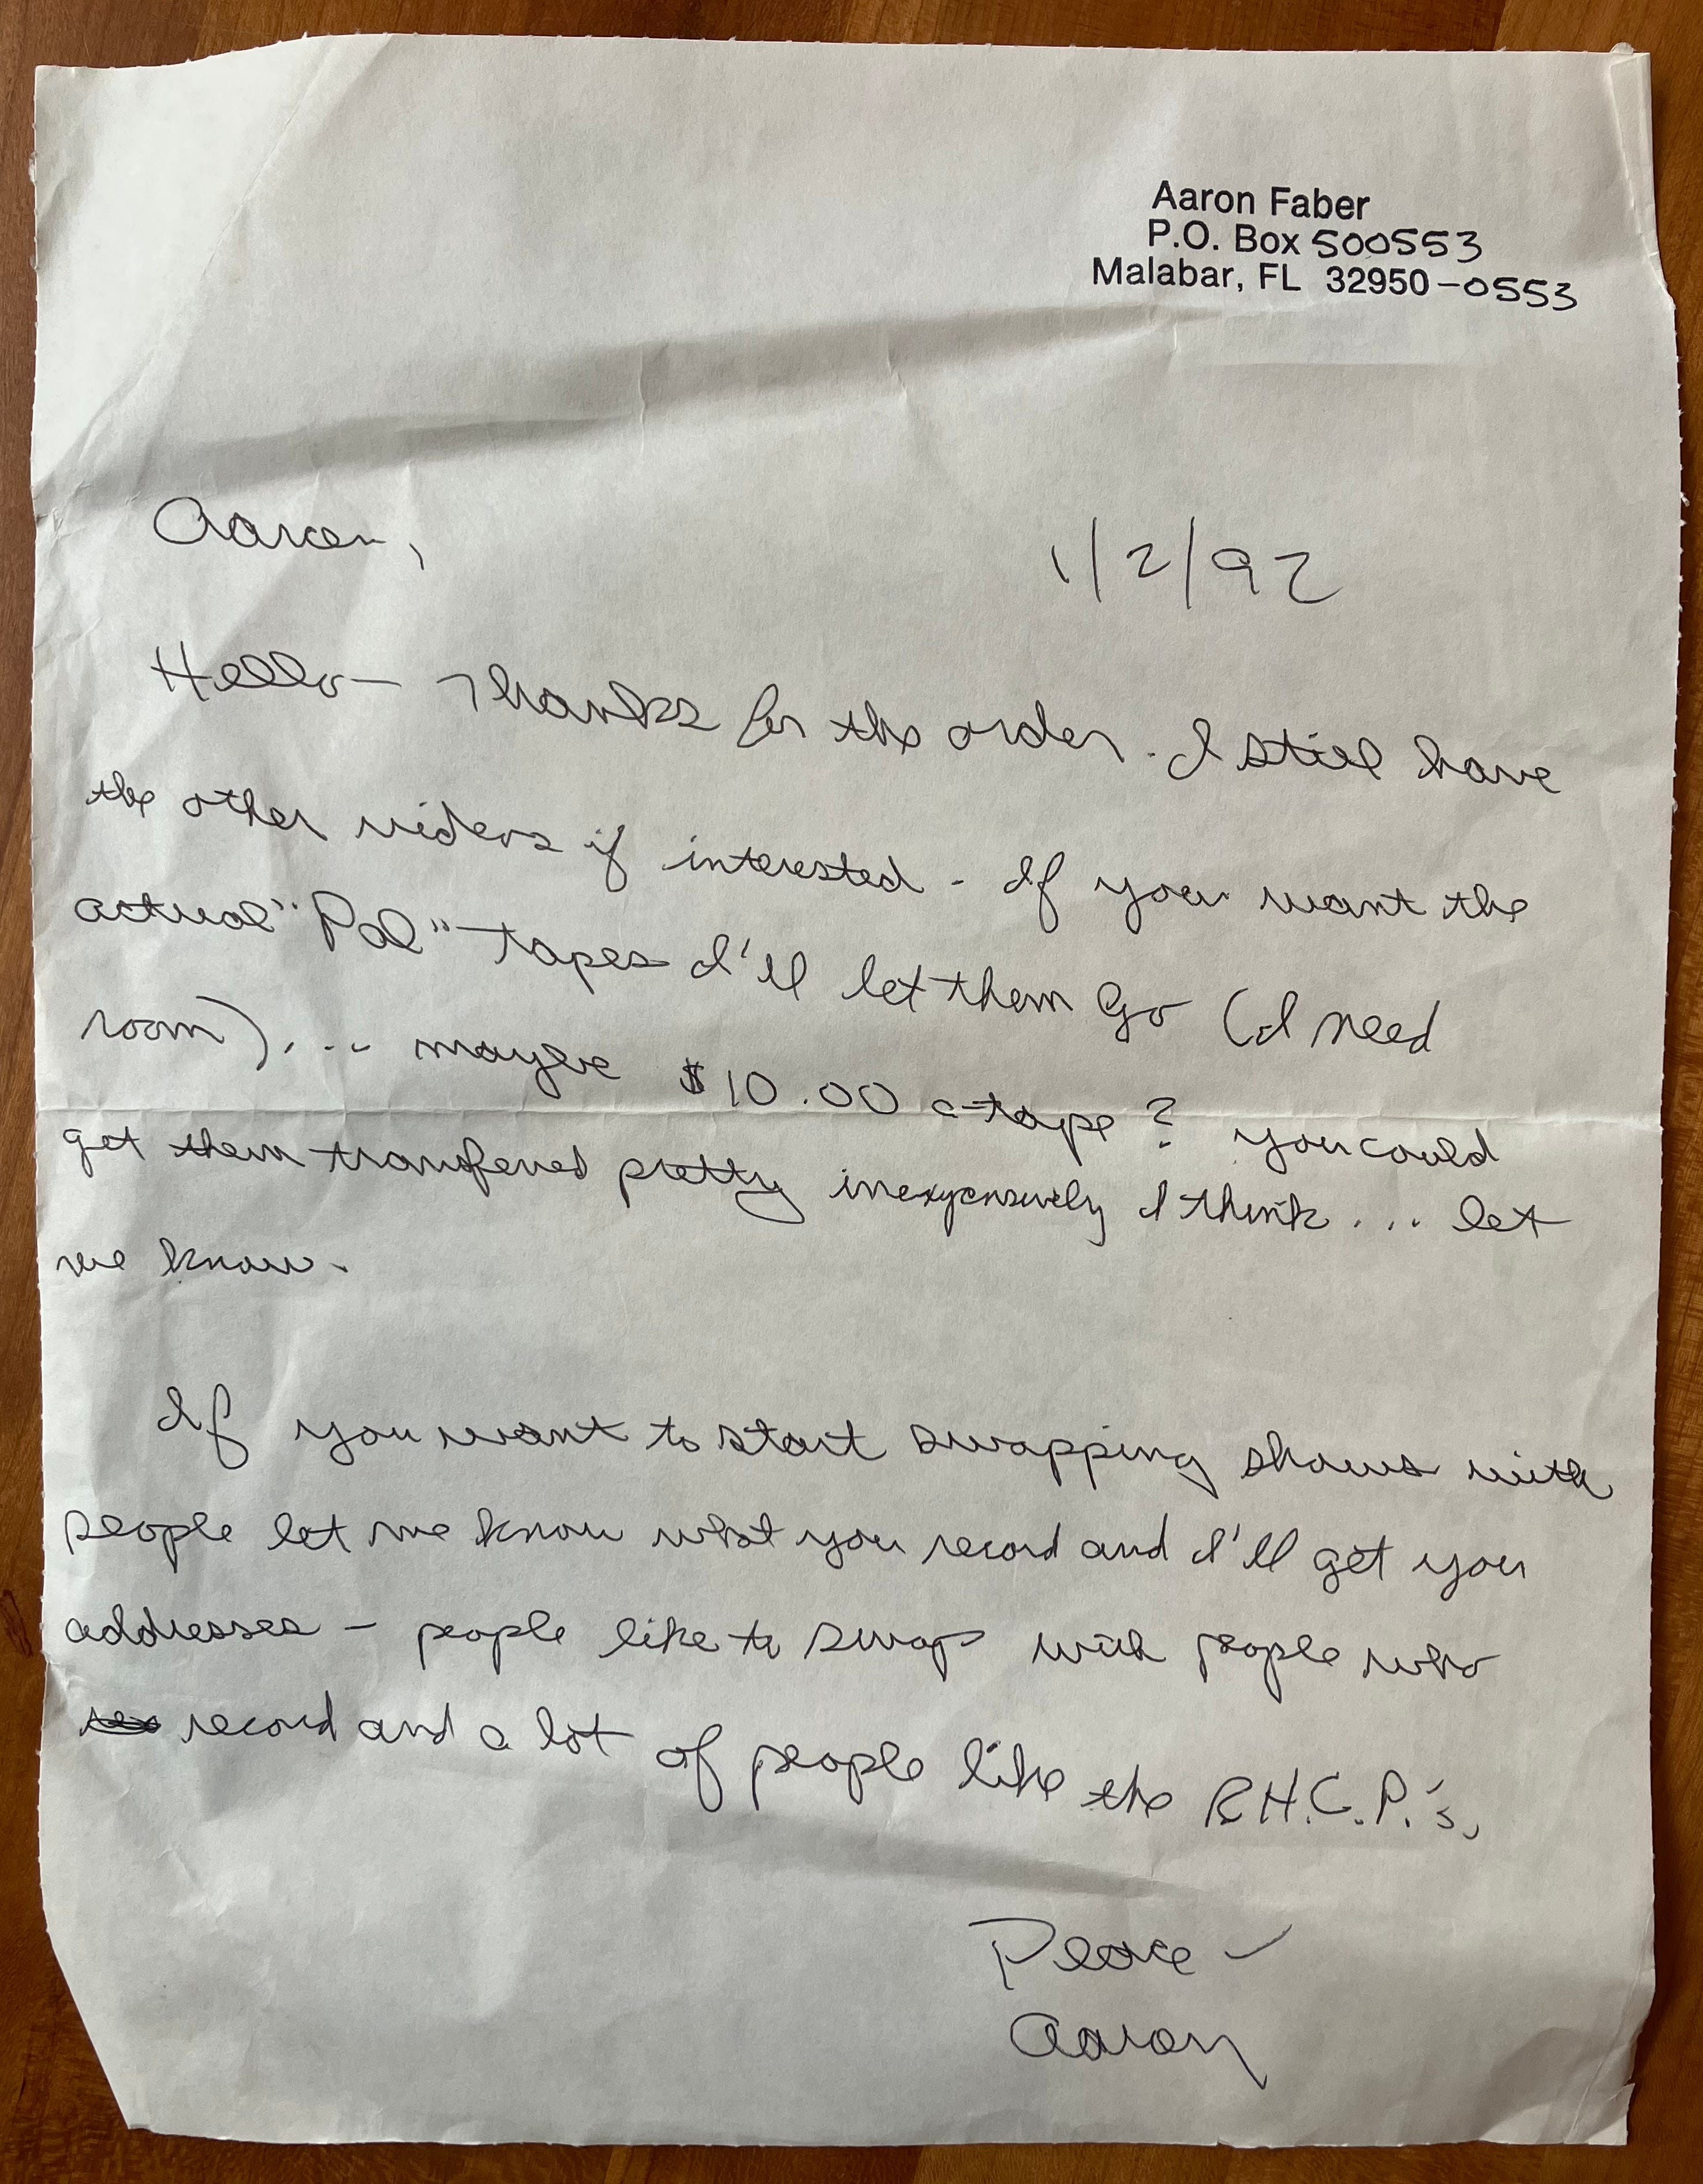 Aaron Faber
P.O. Box 500553
Malabar, FL 32950-0553
Aaron,
1/2/92
Hello - Thanks for the order. I still have
the other videos if interested - If you want the
actual "Pal" tapes I'll let them Go (I need
room)... maybe $10.00 a tape? you could
get them transferred pretty inexpensively I think... let
me know.
If you want to start swapping shows with
people let me know what you record and I'll get you
addresses - people like to swap with people who
record and a lot of people like the R.H.C.P.'s.
Peace -
Aaron